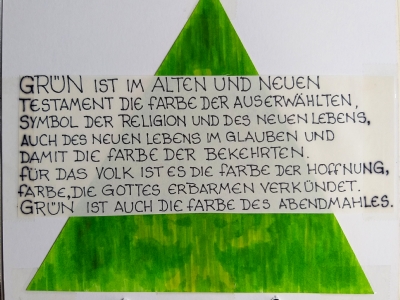 GRÜN IST IM ALTEN UND NEUEN
TESTAMENT DIE FARBE DER AUSERWÄHLTEN,
SYMBOL DER RELIGION UND DES NEUEN LEBENS,
AUCH DES NEUEN LEBENS IM GLAUBEN UND
DAMIT DIE FARBE DER BEKEHRTEN.
FÜR DAS VOLK IST ES DIE FARBE DER HOFFNUNG,
FARBE, DIE GOTTES ERBARMEN VERKÜNDET.
GRÜN IST AUCH DIE FARBE DES ABENDMAHLES.